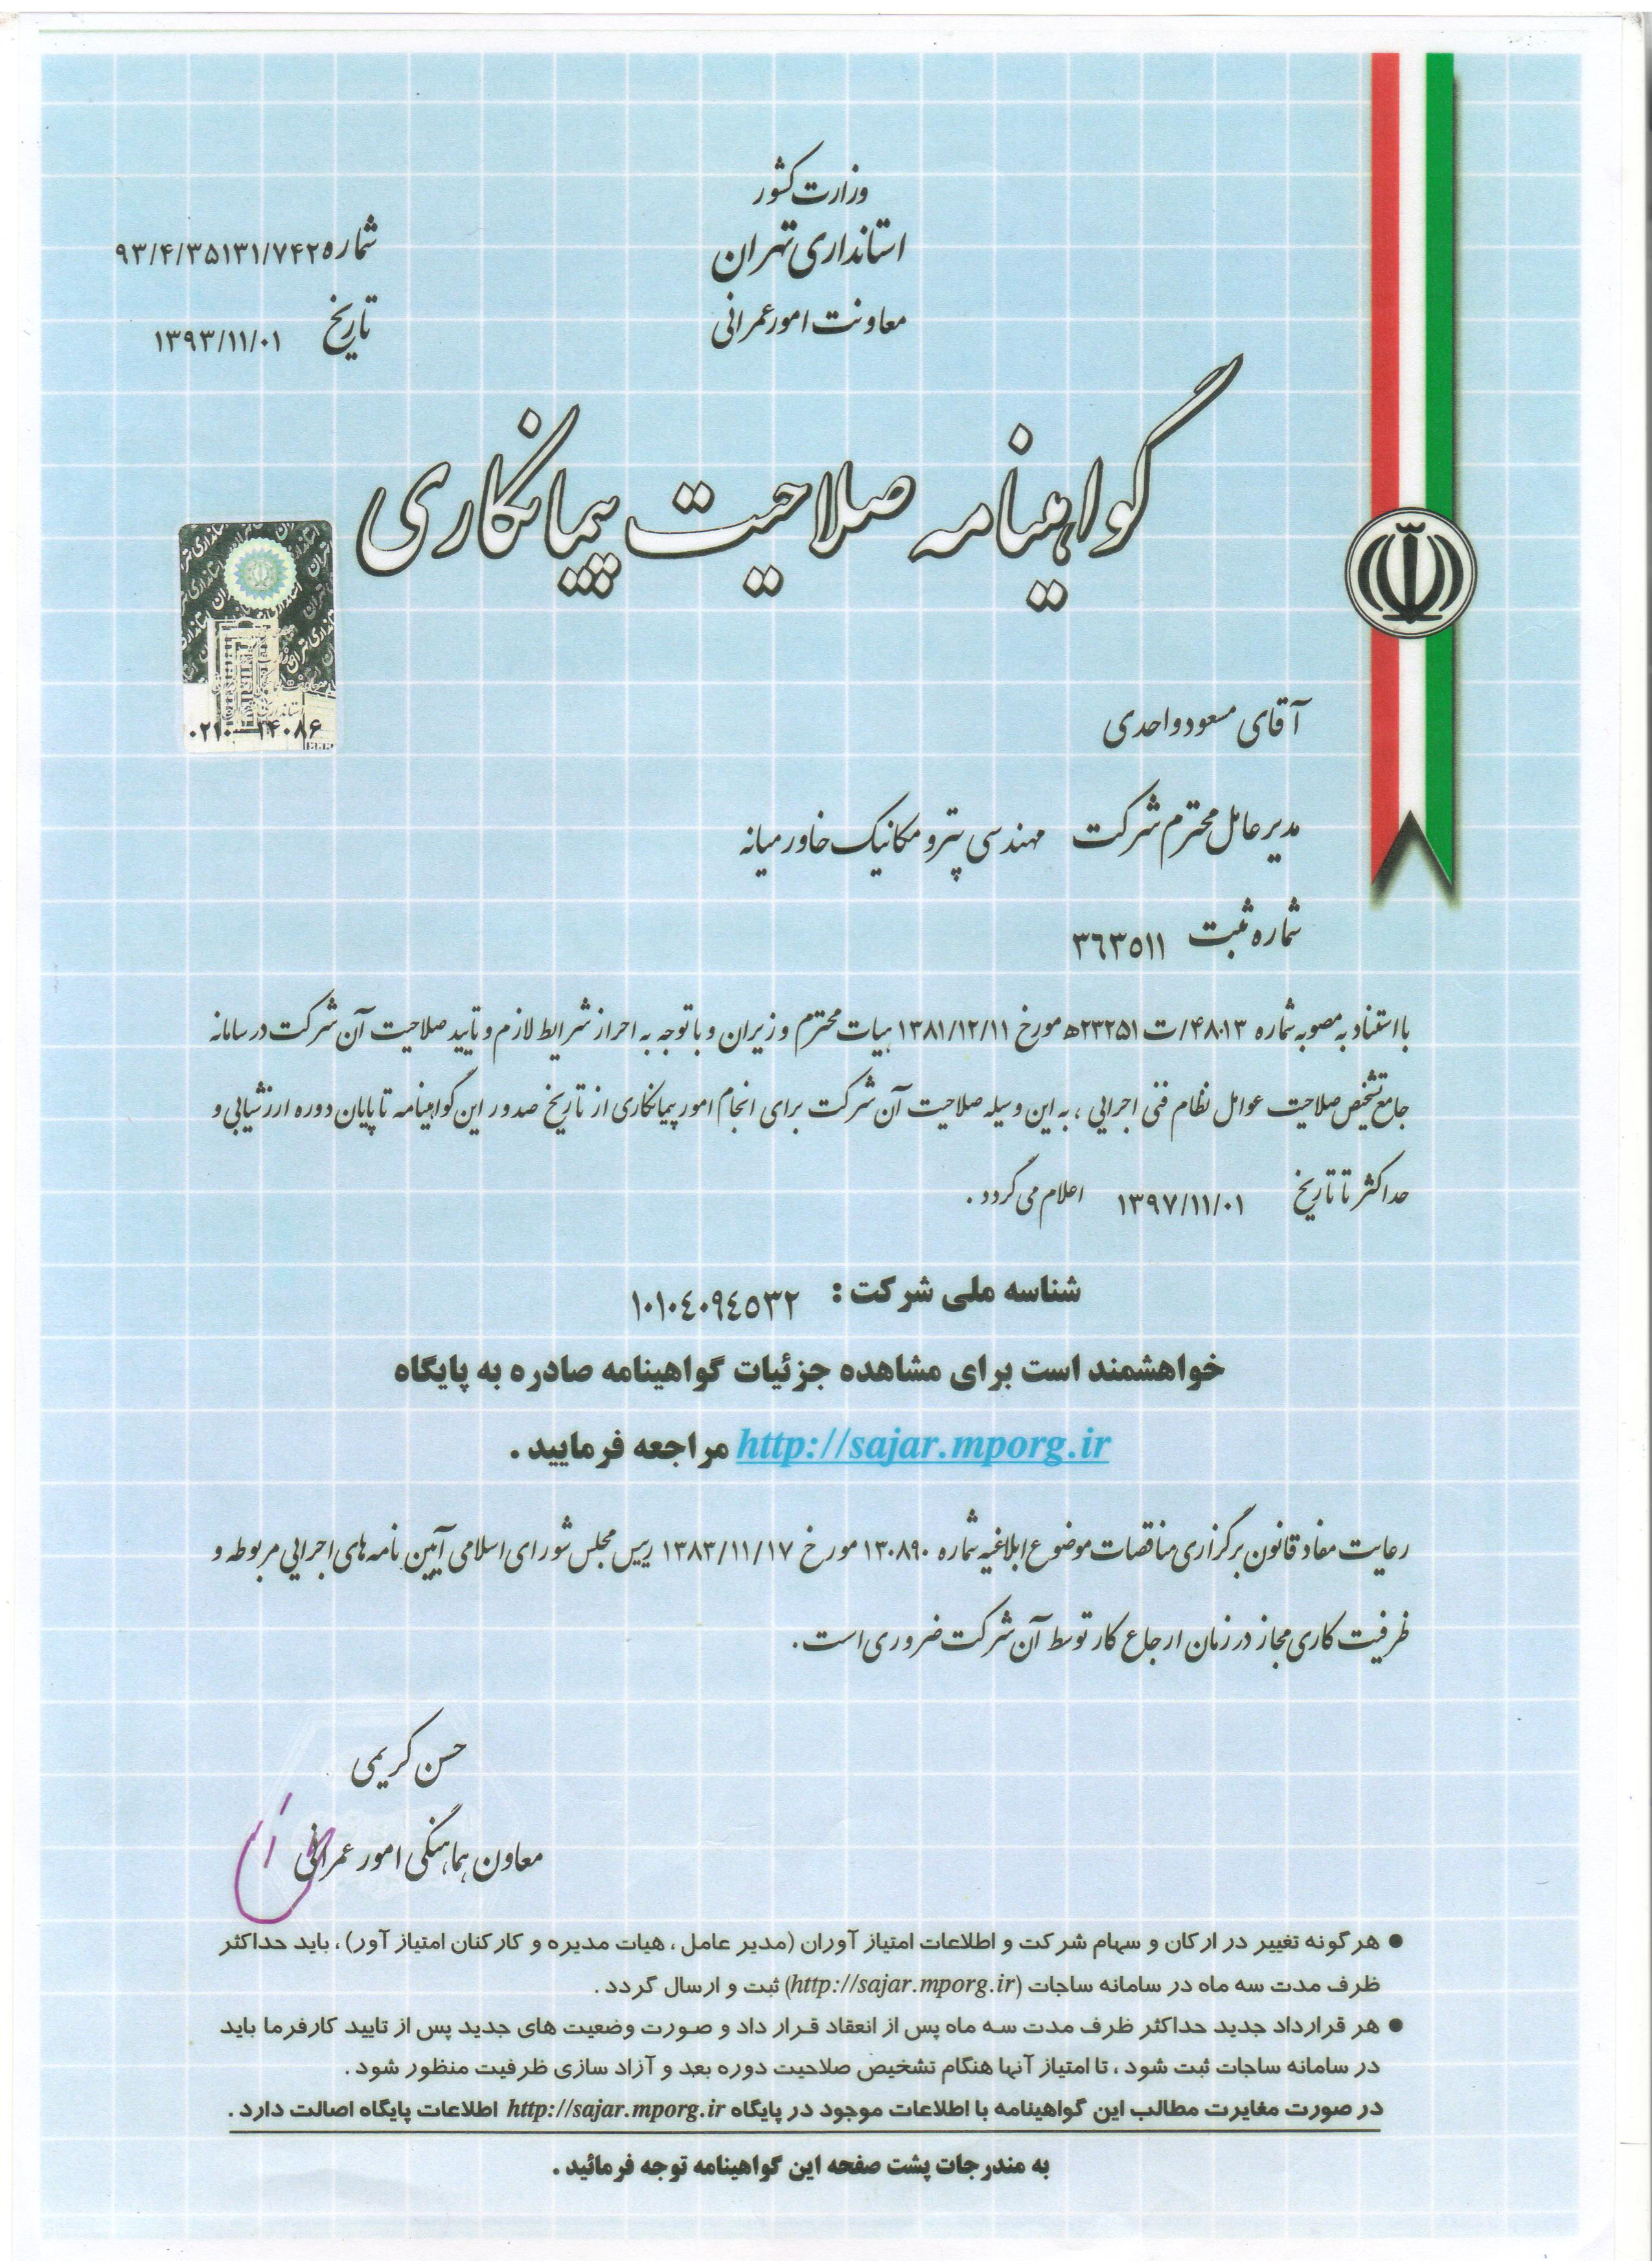 وزارت کشور
استانداری تهران
معاونت امور عمرانی
شماره ۹۳/۴/۳۵۱۳۱/۷۴۲
تاریخ ۱۳۹۳/۱۱/۰۱
گواهینامه صلاحیت پیمانکاری
آقای مسعود واحدی
مدیر عامل محترم شرکت مهندسی پترو مکانیک خاورمیانه
شماره ثبت ۳٦۳٥۱۱
با استناد به مصوبه شماره ۴۸۰۱۳/ت ۲۳۲۵۱ه مورخ ۱۳۸۱/۱۲/۱۱ هیات محترم وزیران و با توجه به احراز شرایط لازم و تایید صلاحیت آن شرکت در سامانه
جامع تشخیص صلاحیت عوامل نظام فنی اجرایی ، به این وسیله صلاحیت آن شرکت برای انجام امور پیمانکاری از تاریخ صدور این گواهینامه تا پایان دوره ارزشیابی و
حداکثر تا تاریخ ۱۳۹۷/۱۱/۰۱ اعلام می گردد .
شناسه ملی شرکت : ۱۰۱۰٤۰۹٤٥۳۲
خواهشمند است برای مشاهده جزئیات گواهینامه صادره به پایگاه
http://sajar.mporg.ir مراجعه فرمایید .
رعایت مفاد قانون برگزاری مناقصات موضوع ابلاغیه شماره ۱۳۰۸۹۰ مورخ ۱۳۸۳/۱۱/۱۷ رییس مجلس شورای اسلامی آیین نامه های اجرایی مربوطه و
ظرفیت کاری مجاز در زمان ارجاع کار توسط آن شرکت ضروری است .
حسن کریمی
معاون هماهنگی امور عمرانی
● هر گونه تغییر در ارکان و سهام شرکت و اطلاعات امتیاز آوران (مدیر عامل ، هیات مدیره و کارکنان امتیاز آور) ، باید حداکثر
ظرف مدت سه ماه در سامانه ساجات (http://sajar.mporg.ir) ثبت و ارسال گردد .
● هر قرارداد جدید حداکثر ظرف مدت سه ماه پس از انعقاد قرار داد و صورت وضعیت های جدید پس از تایید کارفرما باید
در سامانه ساجات ثبت شود ، تا امتیاز آنها هنگام تشخیص صلاحیت دوره بعد و آزاد سازی ظرفیت منظور شود .
در صورت مغایرت مطالب این گواهینامه با اطلاعات موجود در پایگاه http://sajar.mporg.ir اطلاعات پایگاه اصالت دارد .
به مندرجات پشت صفحه این گواهینامه توجه فرمائید .